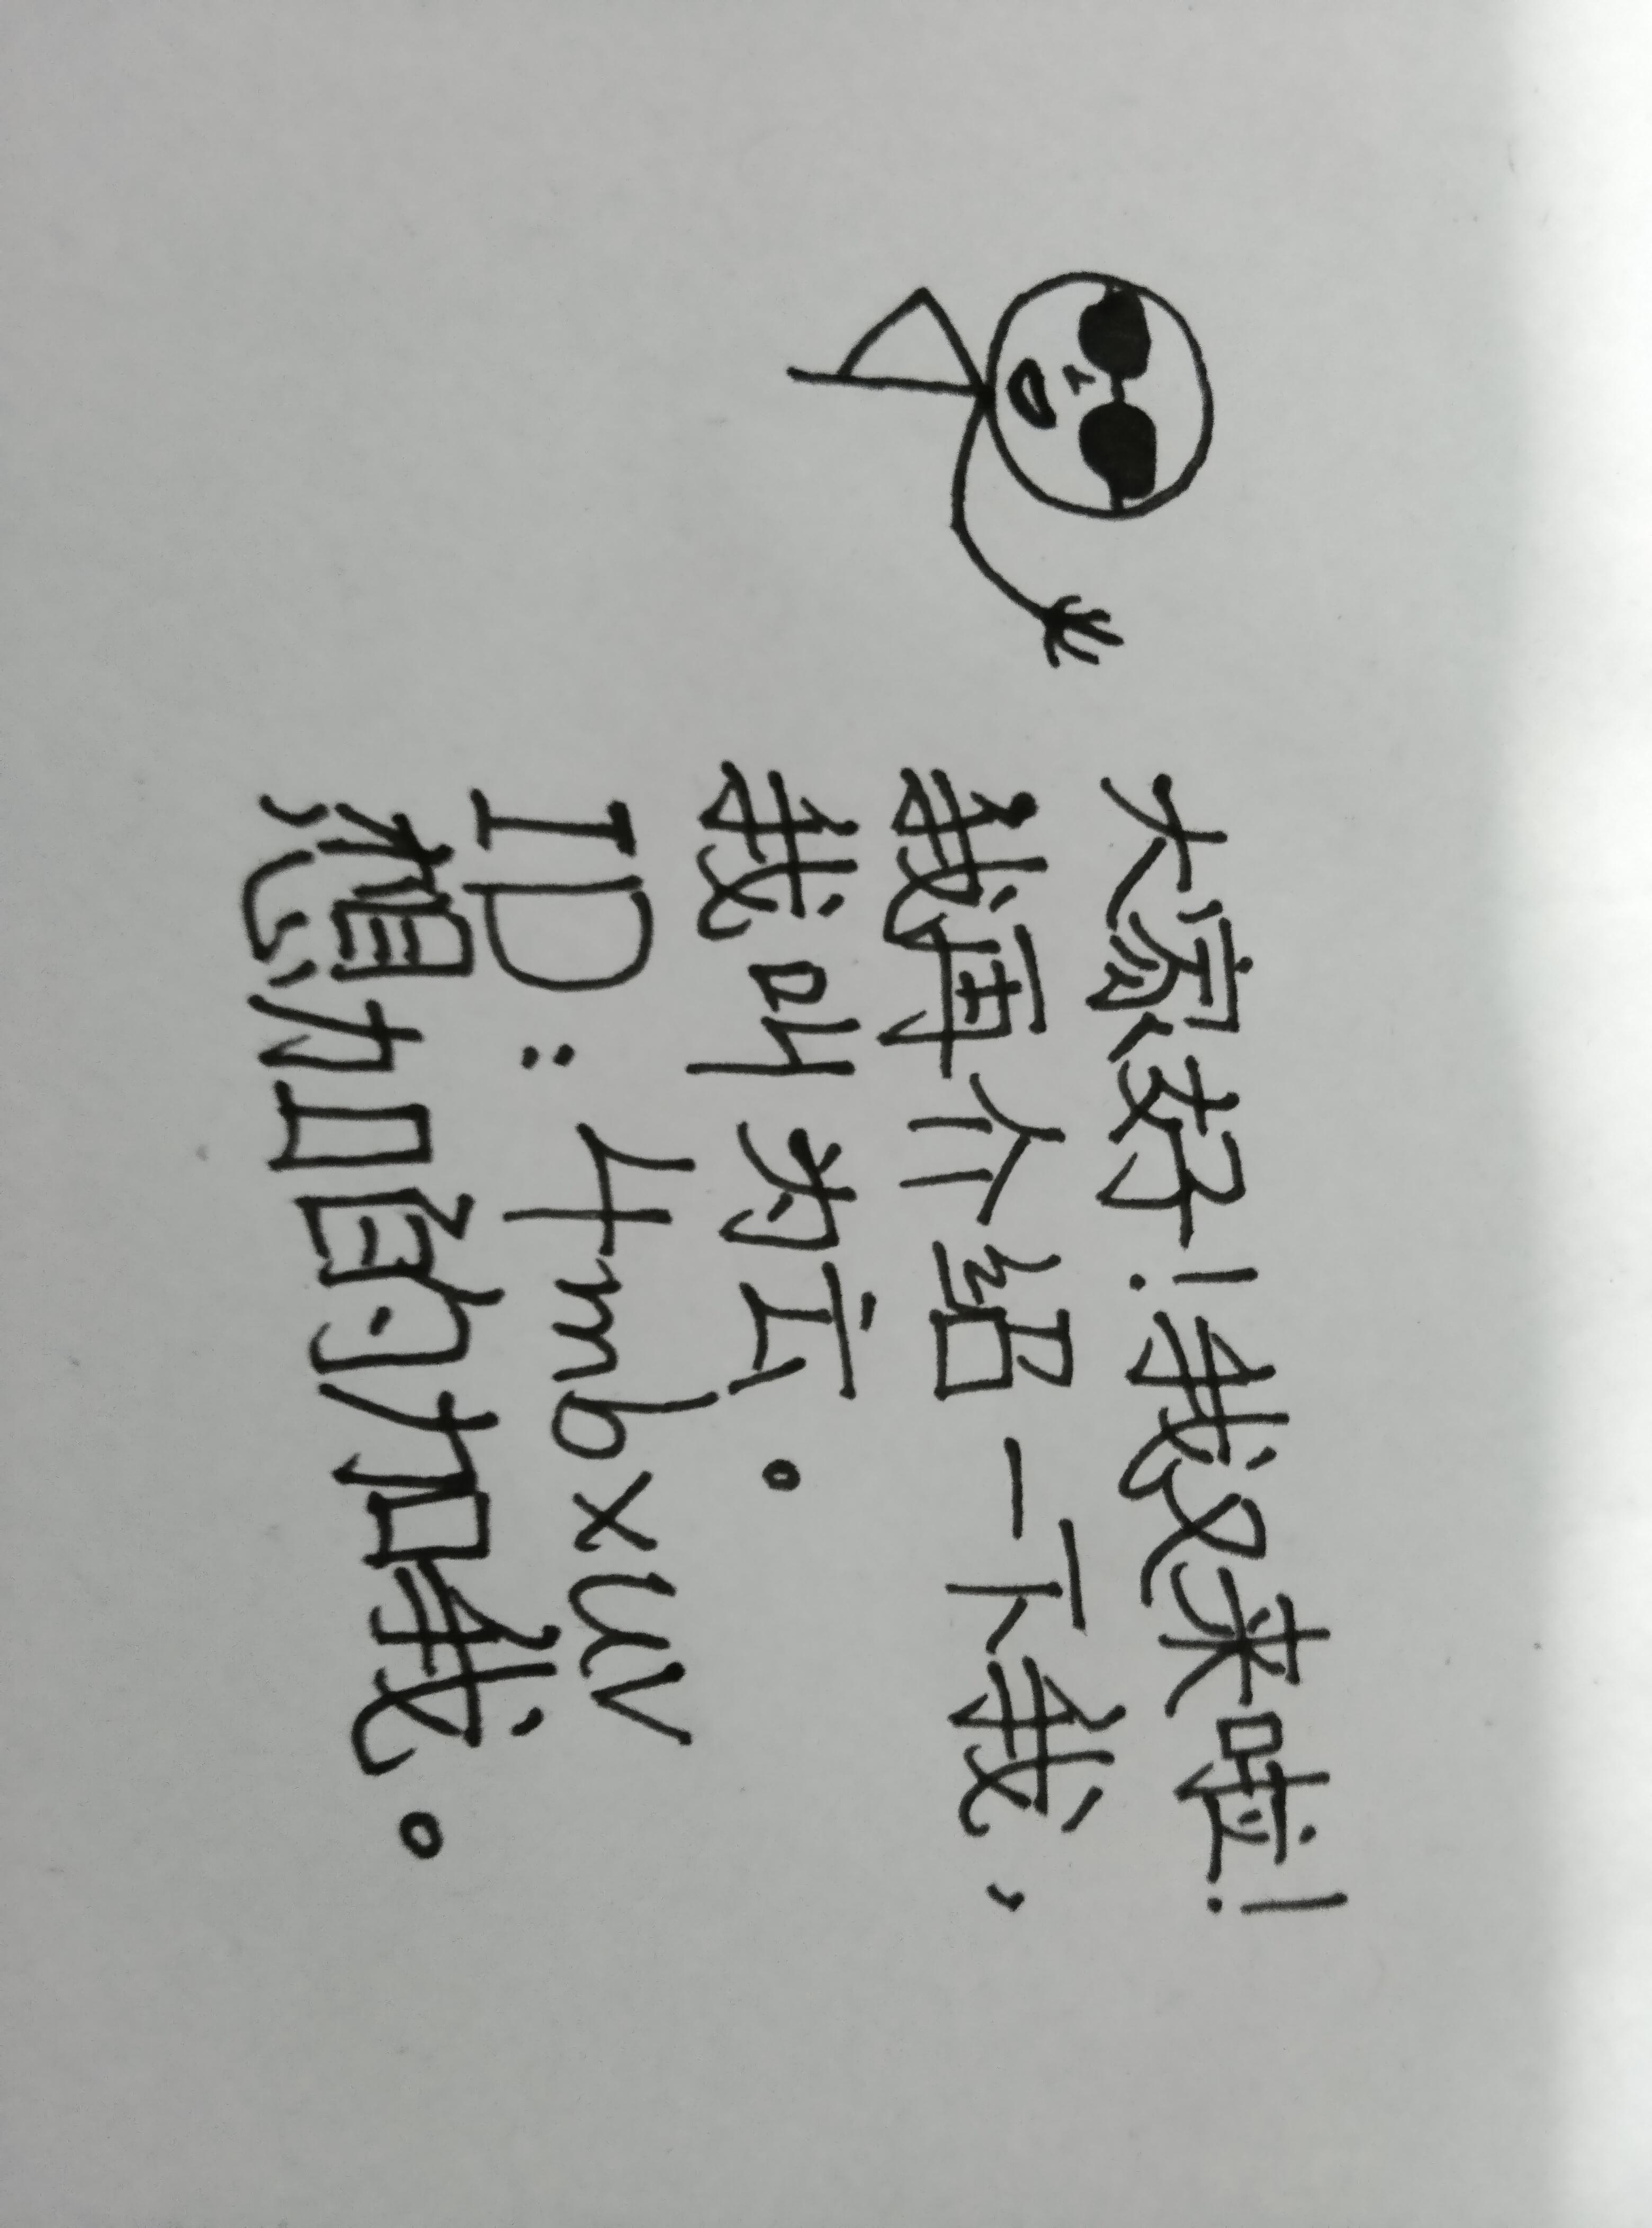 大家好！我又来啦！
我再介绍一下我，
我叫为。
ID：4mbxuv
想加的加我。